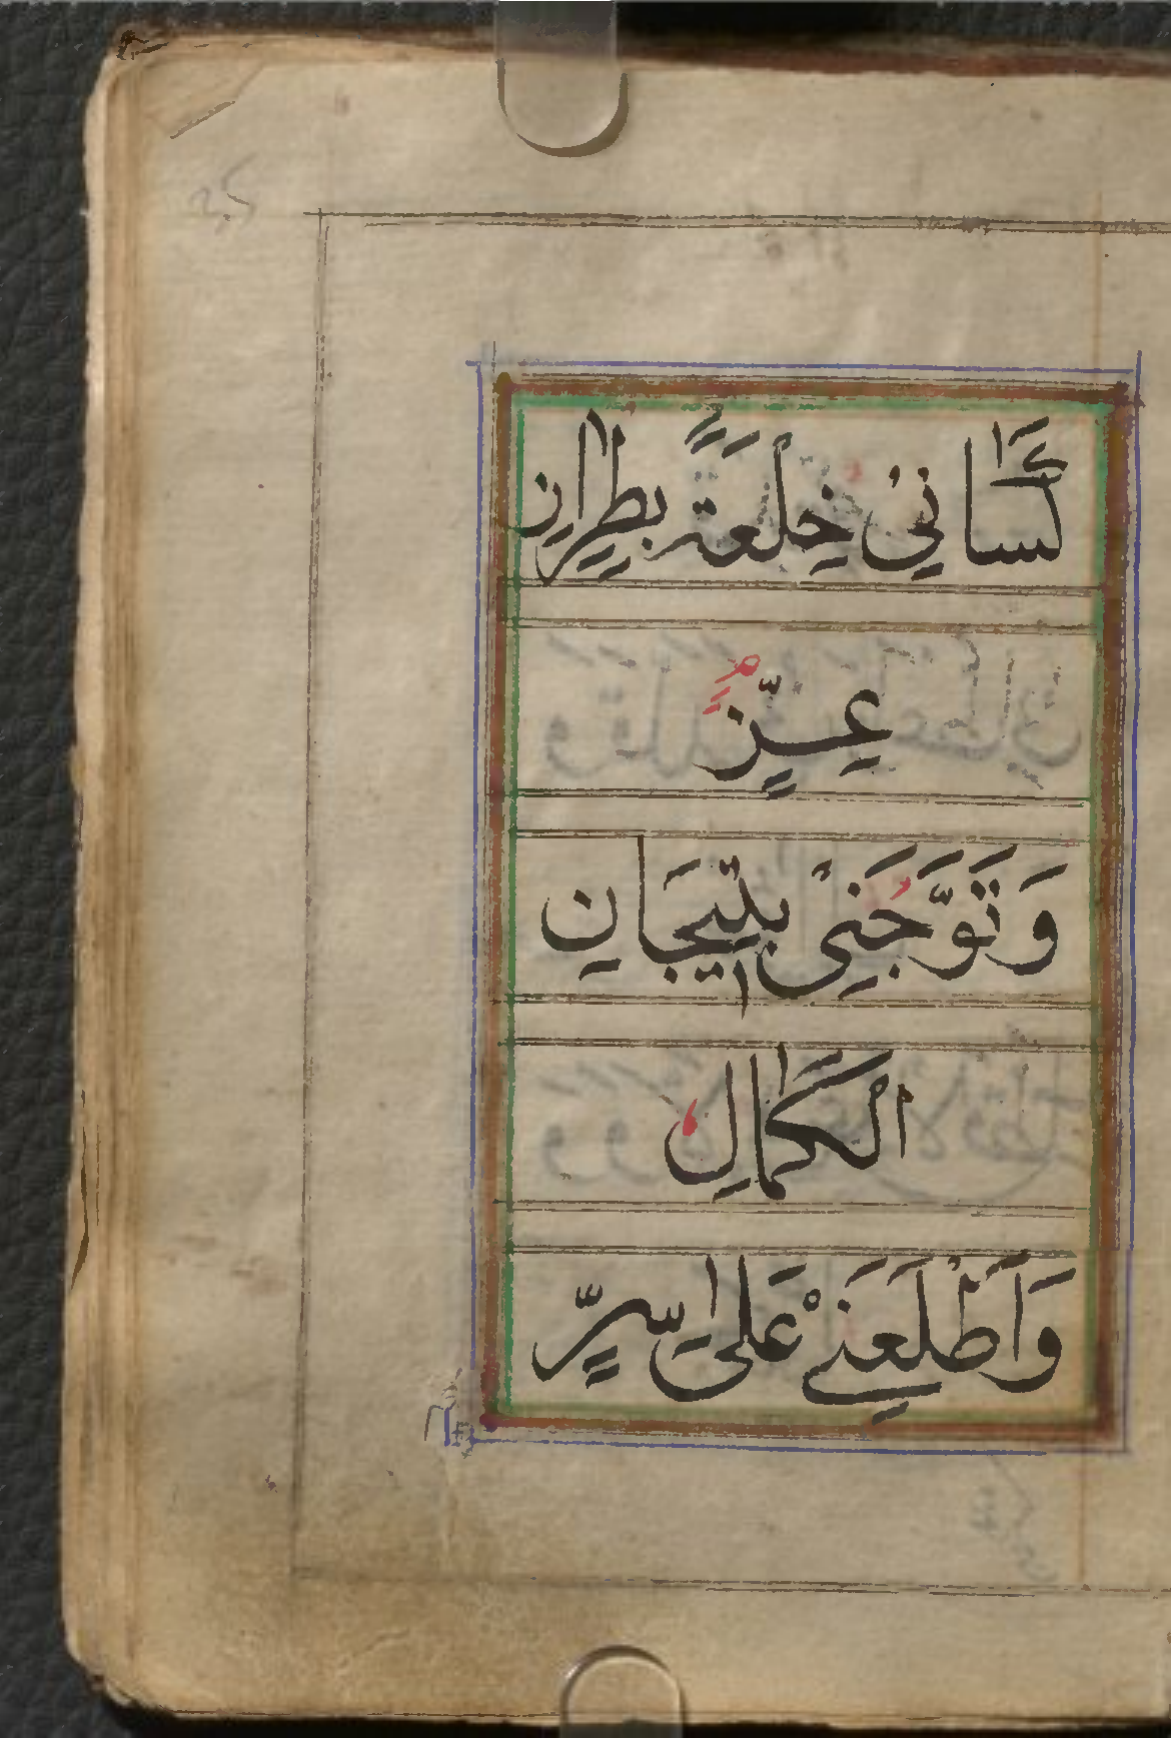 كَسَانِيْ خِلْعَةً بِطِرَازِ
عِزٍّ
وَتَوَّجَنِيْ بِتِيْجَانِ
الْكَمَالِ
وَاَطْلَعَنِيْ عَلٰى سِرٍّ